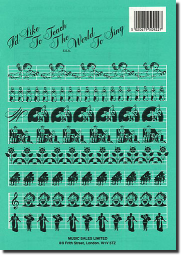 I'd Like
To Teach
The World
To Sing
MUSIC SALES LIMITED
8/9 Frith Street, London, W1V 5TZ